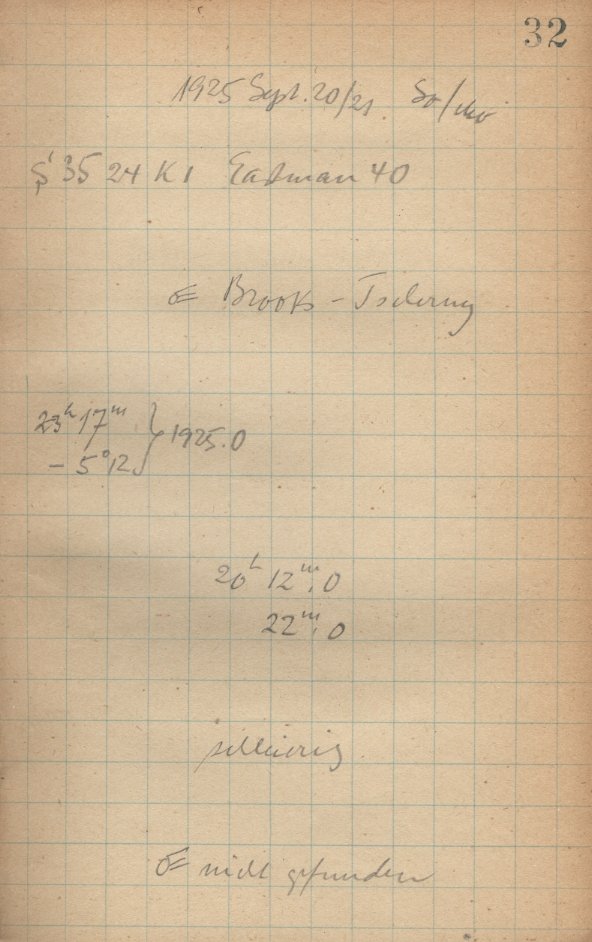 32
1925 Sept. 20/21. So/Mo
S 35 24 K 1 Eastman 40
☄ Brooks - Tscherny
23ʰ 17ᵐ } 1925.0
- 5° 12
20ʰ 12ᵐ.0
22ᵐ.0
schleierig
☄ nicht gefunden